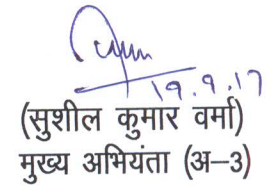 19.9.17
(सुशील कुमार वर्मा)
मुख्य अभियंता (अ–3)